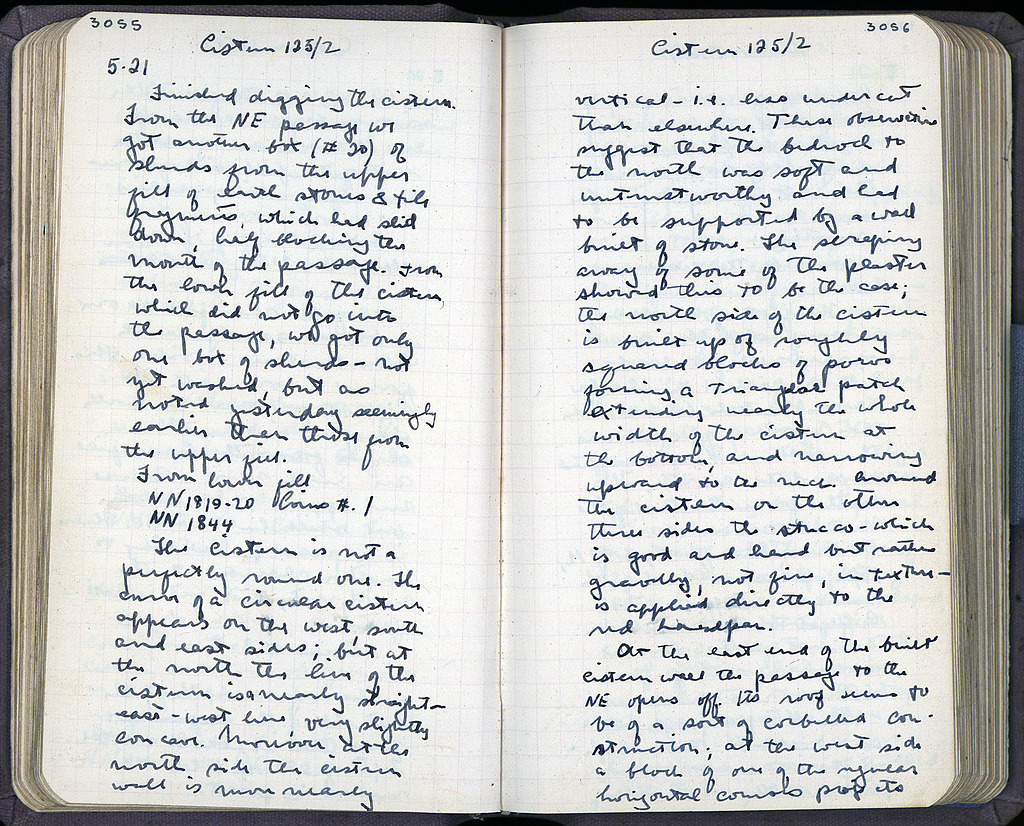 3055
Cistern 125/2
5·21
Finished digging the cistern.
From the NE passage we
got another box (# 20) of
sherds from the upper
fill of earth stones & tile
fragments, which had slid
down, half blocking the
mouth of the passage. From
the lower fill of the cistern,
which did not go into
the passage, we got only
one box of sherds - not
yet washed, but as
noted yesterday seemingly
earlier than those from
the upper fill.
From lower fill
NN 1819-20 Coins #. 1
NN 1844
The cistern is not a
perfectly round one. The
curve of a circular cistern
appears on the west, south
and east sides; but at
the north the line of the
cistern is a nearly straight
east-west line, very slightly
concave. Moreover at the
north side the cistern
wall is more nearly
3056
Cistern 125/2
vertical - i.e. less undercut
than elsewhere. These observations
suggest that the bedrock to
the north was soft and
untrustworthy and had
to be supported by a wall
built of stone. The scraping
away of some of the plaster
showed this to be the case;
the north side of the cistern
is built up of roughly
squared blocks of poros
forming a triangular patch
extending nearly the whole
width of the cistern at
the bottom, and narrowing
upward to the neck. Around
the cistern on the other
three sides the stucco - which
is good and hard but rather
gravelly, not fine, in texture -
is applied directly to the
red hardpan.
At the east end of the built
cistern wall the passage to the
NE opens off. Its roof seems to
be of a sort of corbelled con-
struction; at the west side
a block of one of the regular
horizontal courses projects